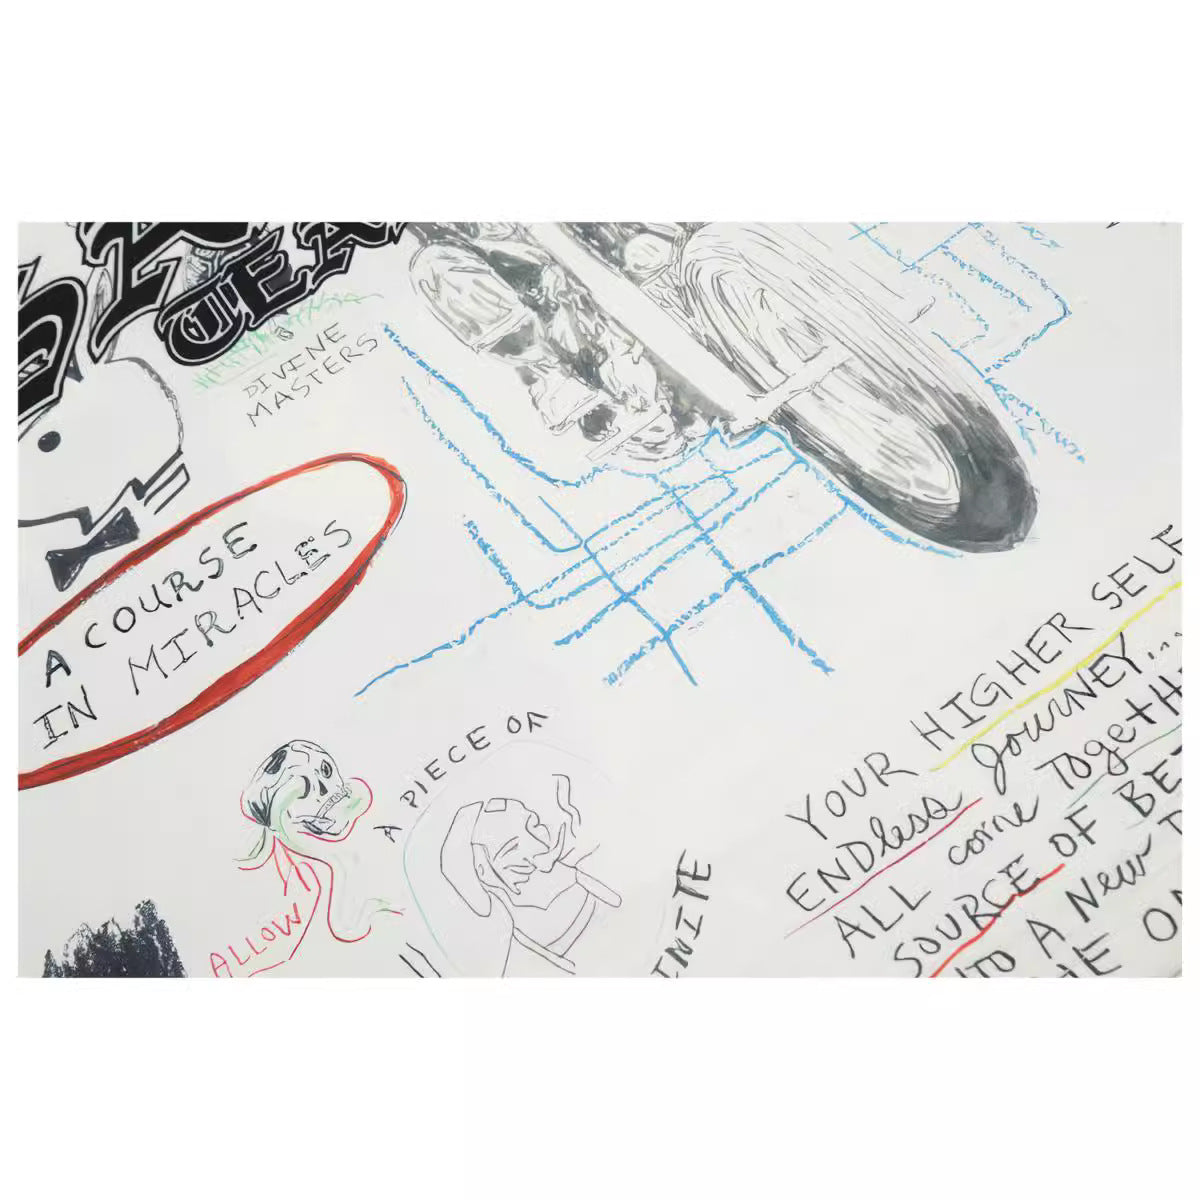 TEA
DIVINE
MASTERS
A COURSE
IN MIRACLES
A PIECE OF
ALLOW
YOUR HIGHER SELF
ENDless JOURNEY...
ALL come TogetH
SOURCE OF BE
A New